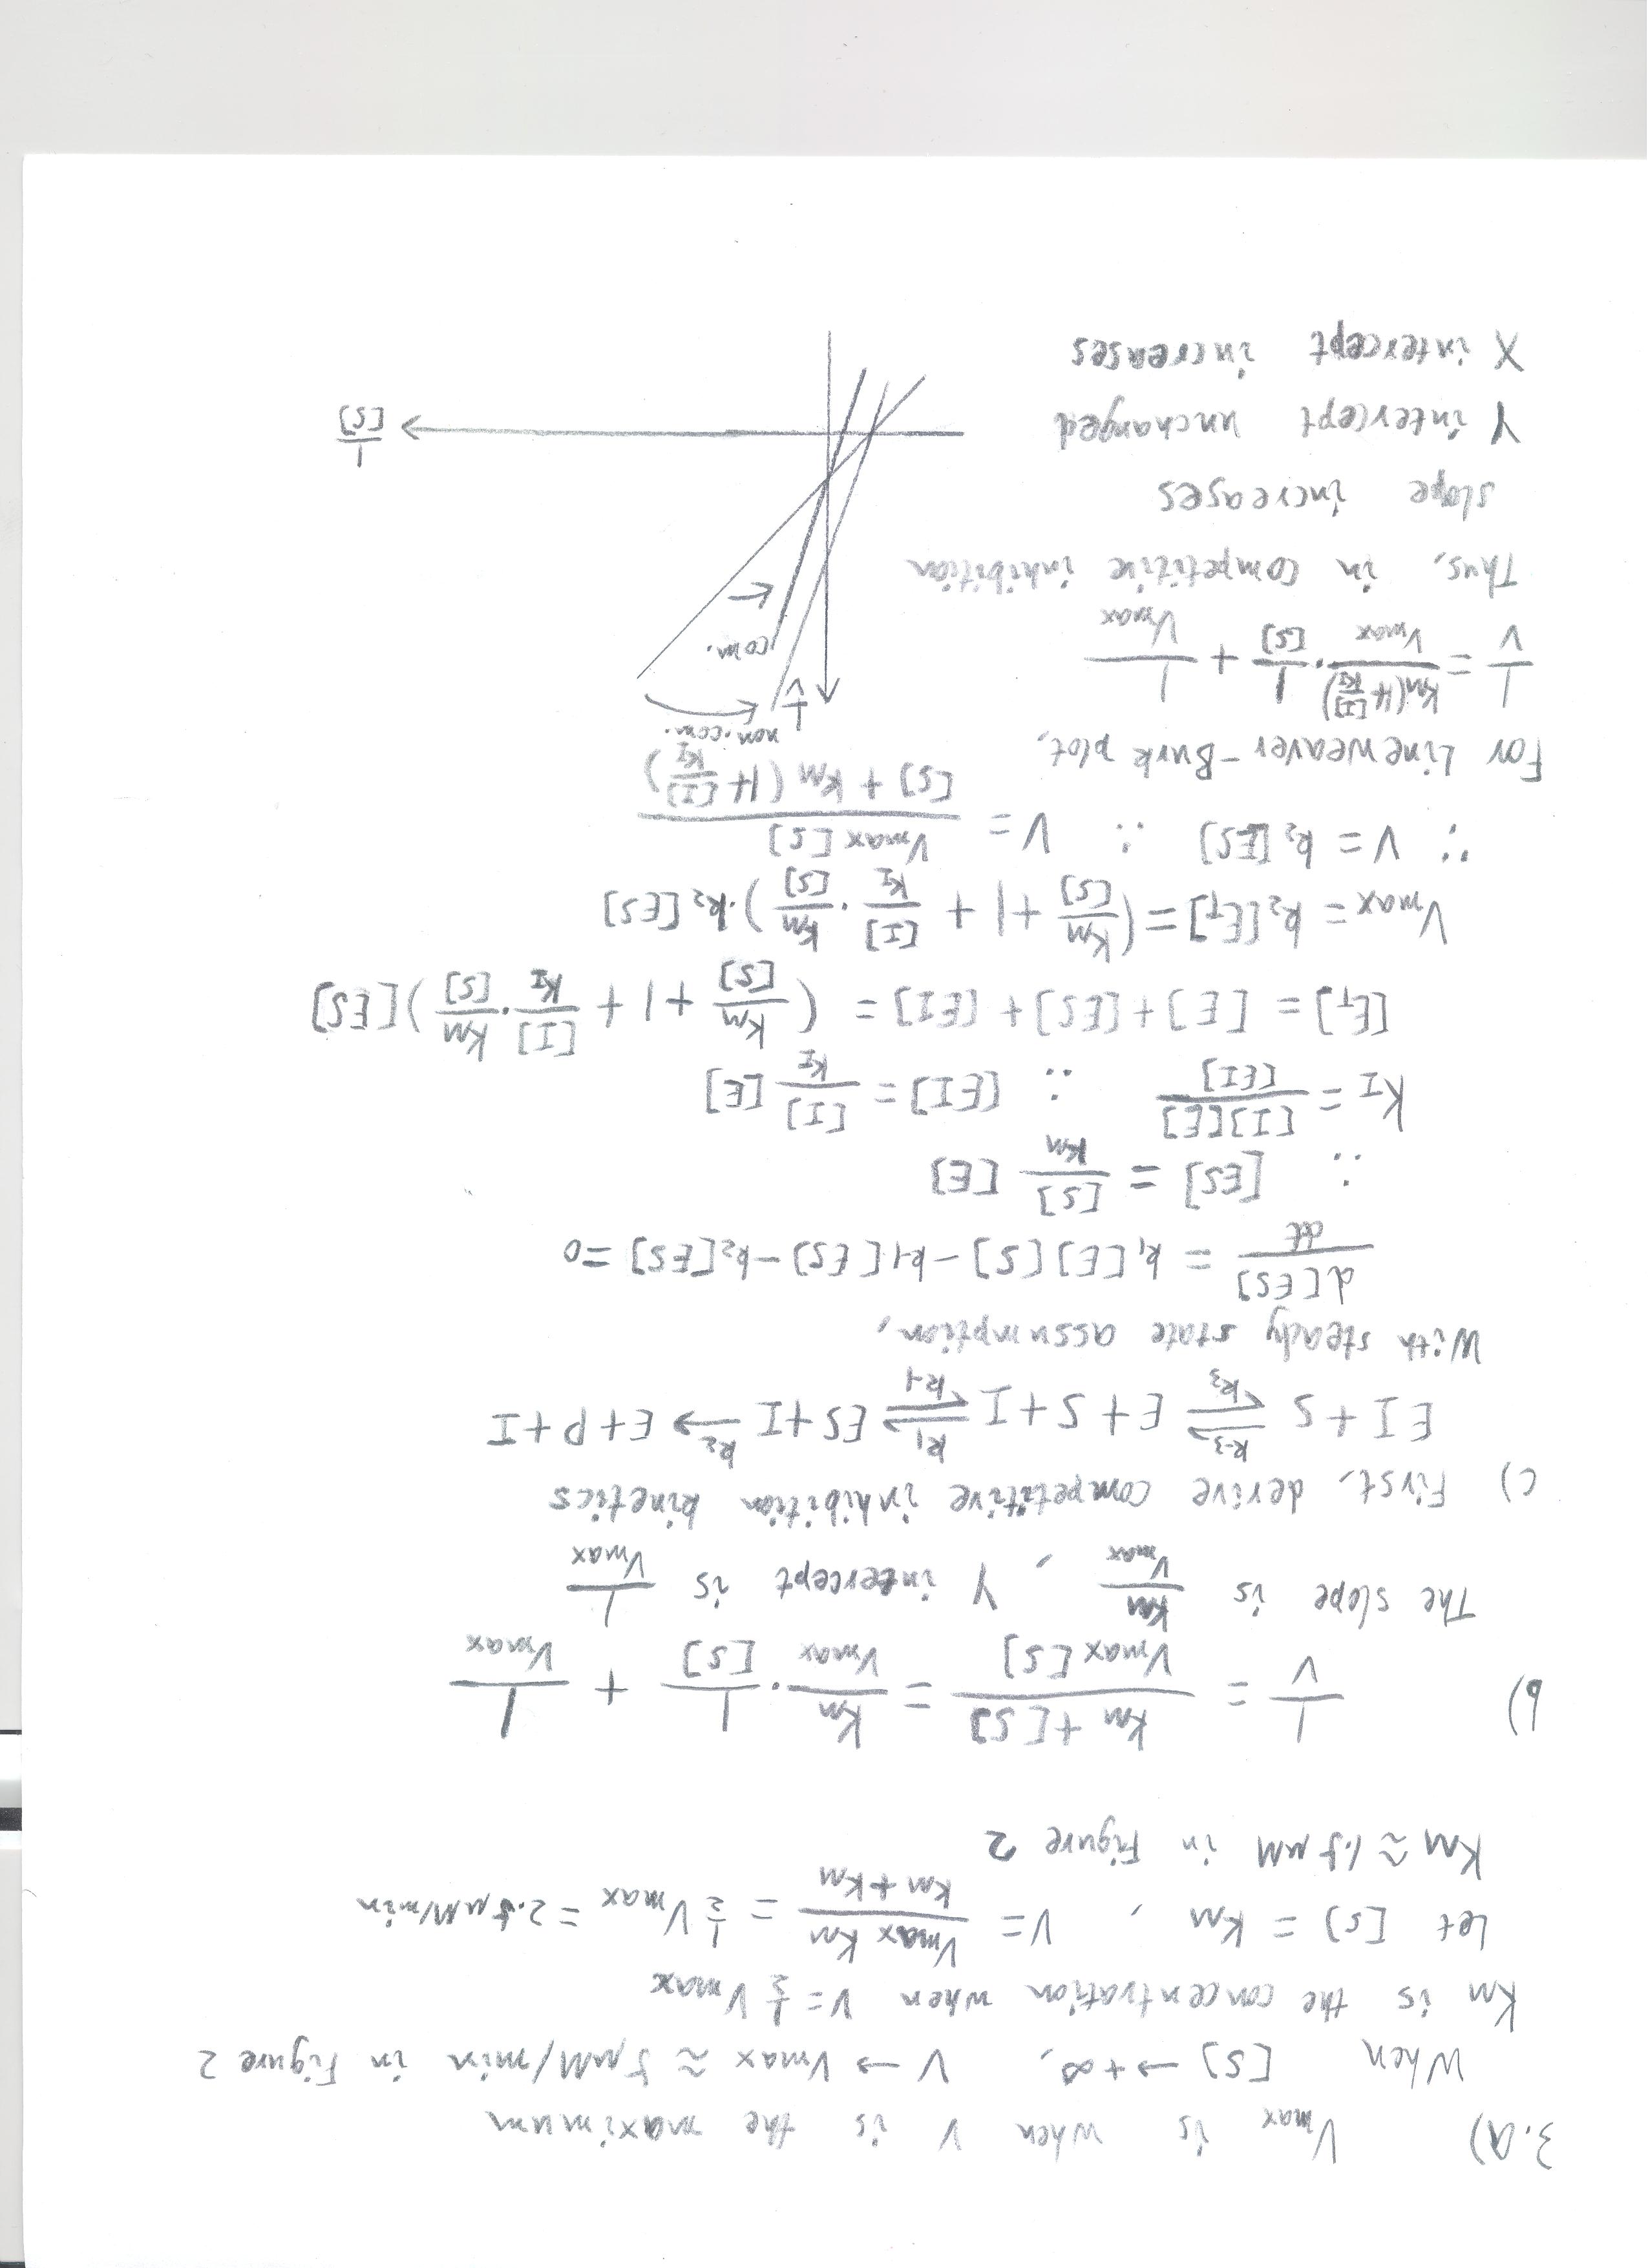 3.a) Vmax is when V is the maximum
When [S] → +∞, V → Vmax ≈ 5 μM/min in Figure 2
KM is the concentration when V = ½ Vmax
Let [S] = KM, V = Vmax KM / (KM + KM) = ½ Vmax = 2.5 μM/min
KM ≈ 1.5 μM in Figure 2
b) 1/V = (KM + [S]) / (Vmax [S]) = KM/Vmax · 1/[S] + 1/Vmax
The slope is KM/Vmax, Y intercept is 1/Vmax
c) First, derive competitive inhibition kinetics
EI + S ⇌ (k-3, k3) E + S + I ⇌ (k1, k-1) ES + I → (k2) E + P + I
With steady state assumption,
d[ES]/dt = k1[E][S] - k-1[ES] - k2[ES] = 0
∴ [ES] = [S]/KM [E]
KI = [I][E]/[EI] ∴ [EI] = [I]/KI [E]
[ET] = [E] + [ES] + [EI] = (KM/[S] + 1 + [I]/KI · KM/[S])[ES]
Vmax = k2[ET] = (KM/[S] + 1 + [I]/KI · KM/[S]) · k2[ES]
∵ V = k2[ES] ∴ V = Vmax [S] / ([S] + KM (1 + [I]/KI))
For Lineweaver-Burk plot,
1/V = KM(1+[I]/KI)/Vmax · 1/[S] + 1/Vmax
Thus, in competitive inhibition
slope increases
Y intercept unchanged
X intercept increases
non. com.
1/V
com.
1/[S]